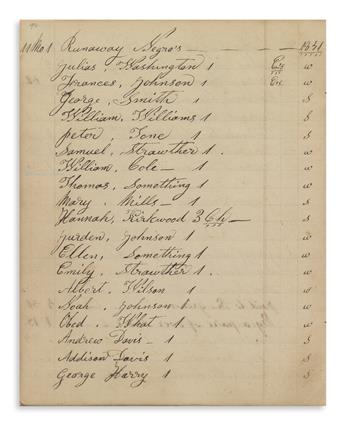 11 Mo 1 Runaway Negro's — 1851
Julias, Washington 1 w
Frances, Johnson 1 w
George, Smith 1 S
William, Williams 1 S
Peter, Tone 1 S
Samuel, Strawther 1. w
William, Cole — 1 w
Thomas, Something 1 w
Mary, Mills — 1 S
Hannah, Kirkwood 3 Ch — S
Jurden, Johnson 1 w
Ellen, Something 1 w
Emily, Strawther 1. w
Albert, Wilson 1 w
Noah, Johnson 1 w
Obed, What 1. w
Andrew Davis — 1 S
Addison Davis 1 S
George Harry 1 S